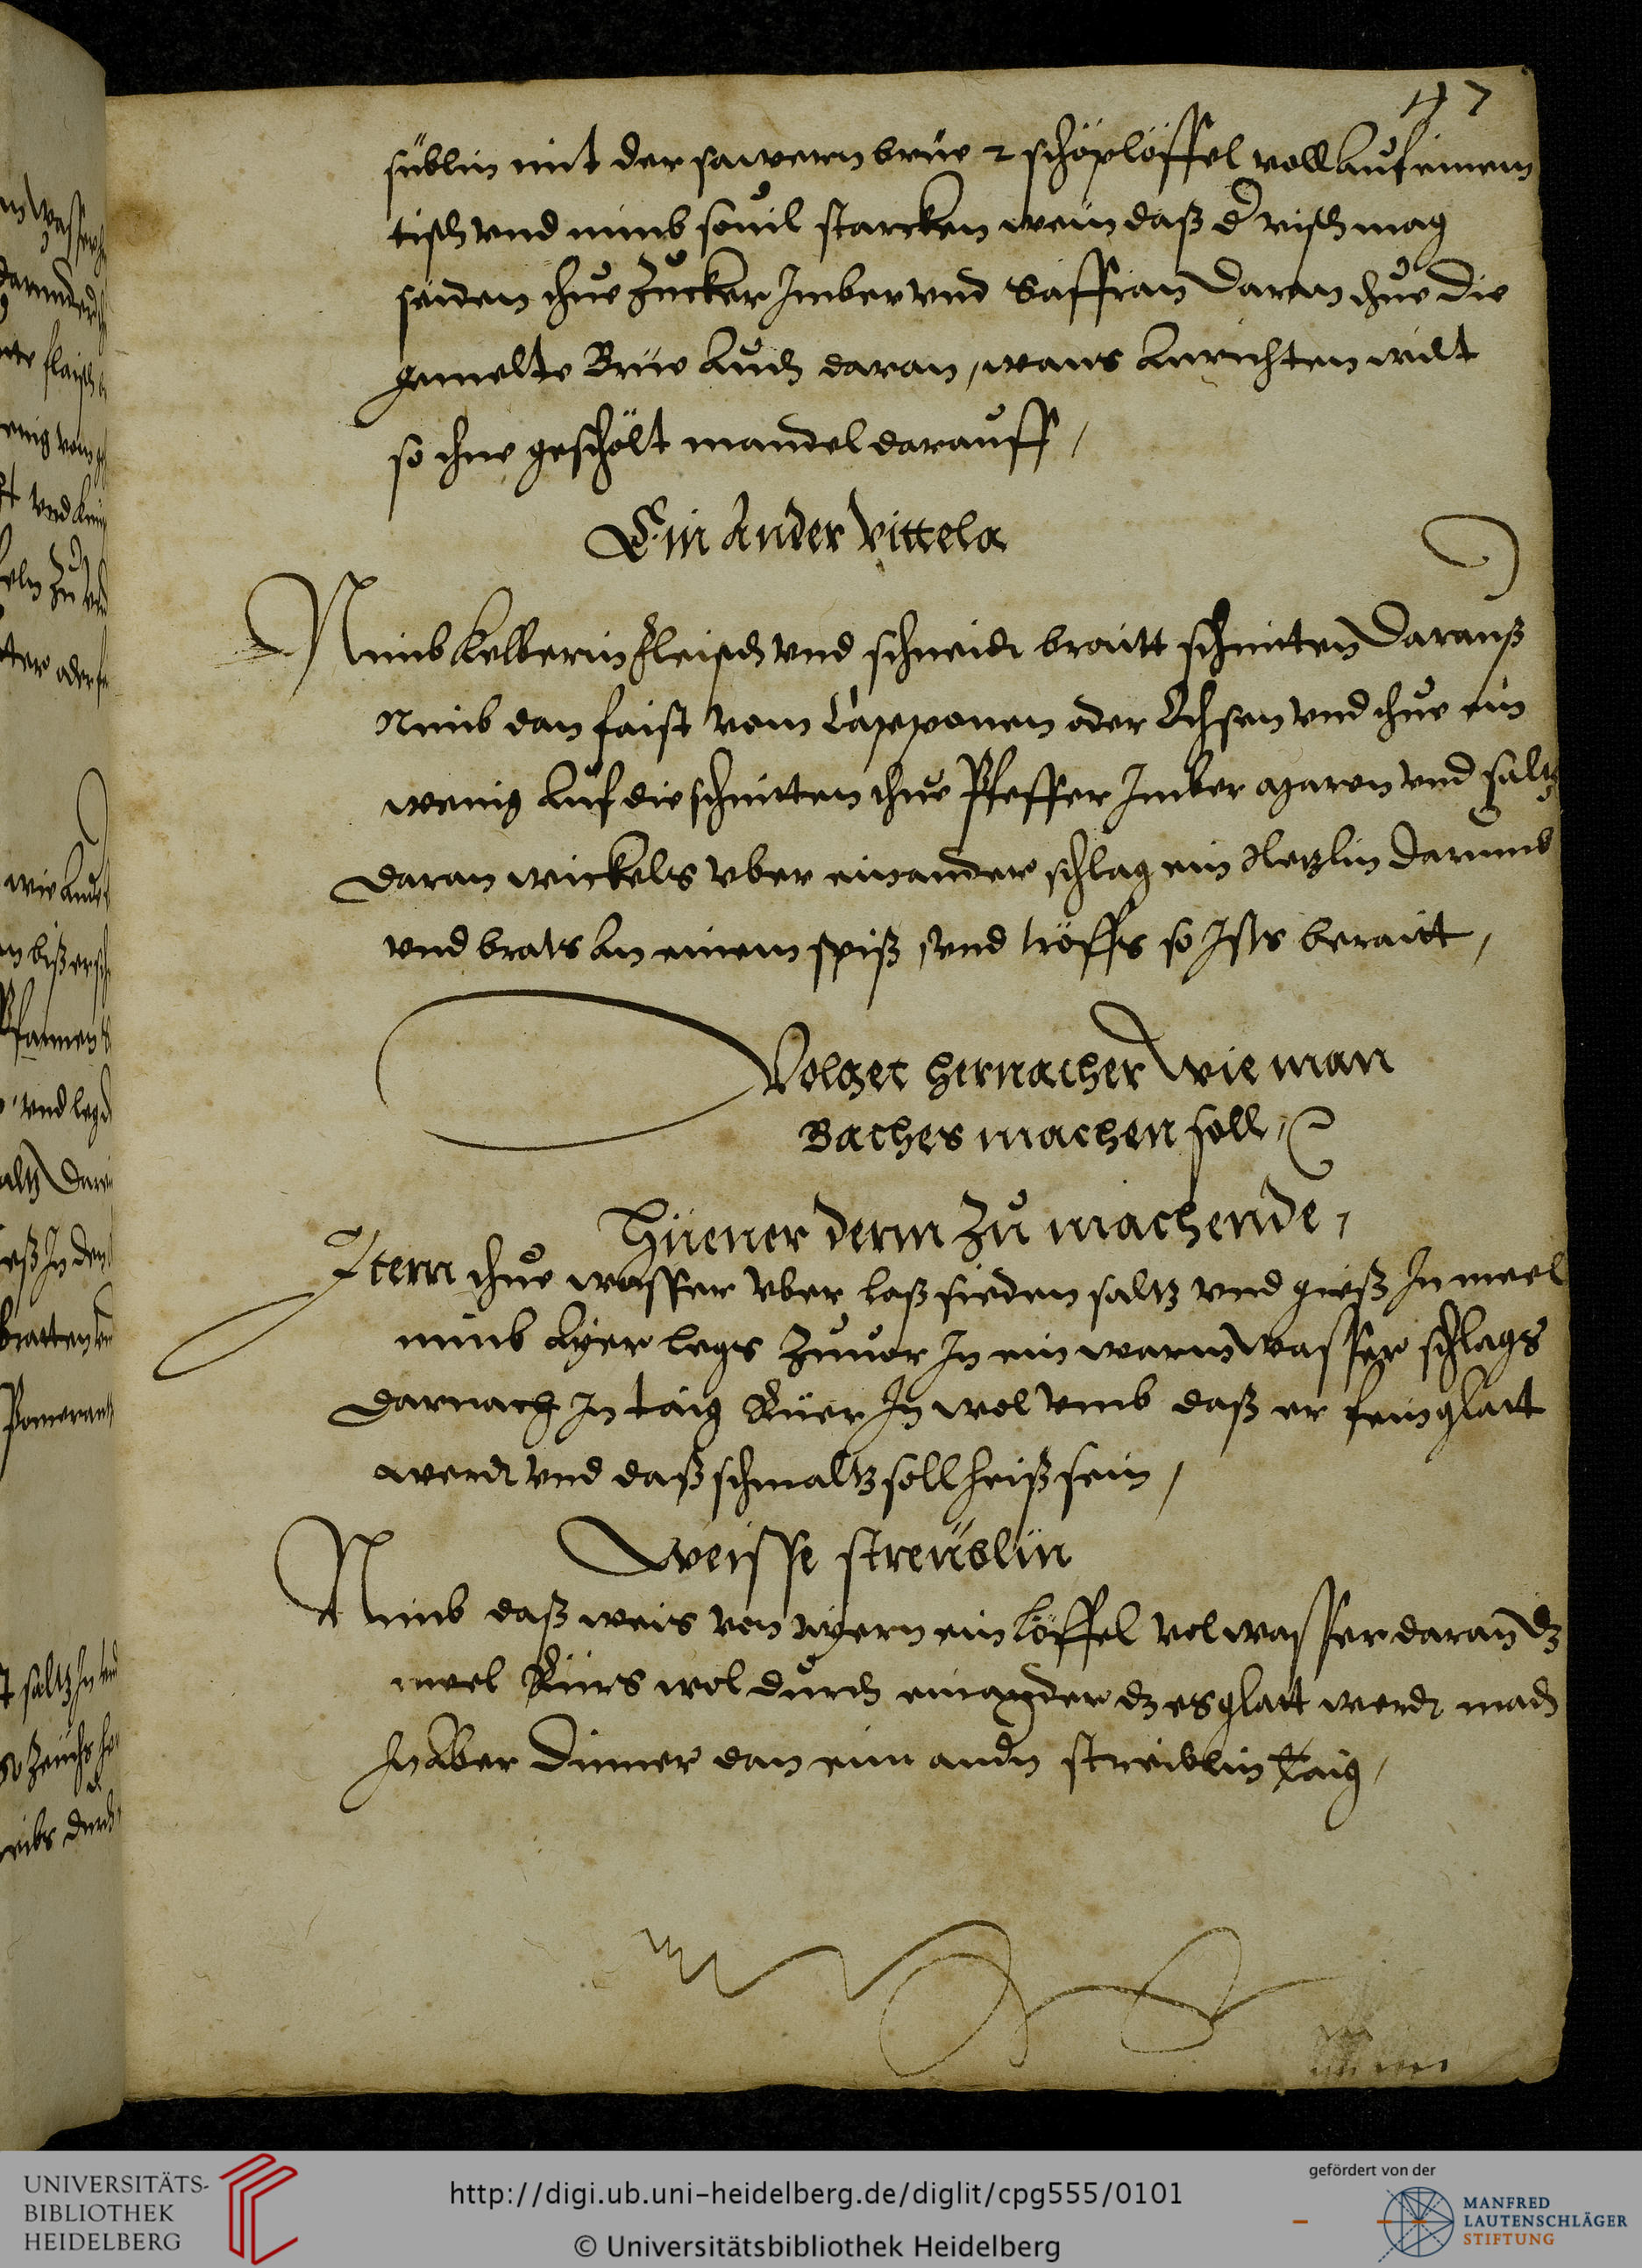 47
süblin mit der sawern brüe 2 schöplöffel voll auf einem
tisch vnd nimb souil starcken wein daß d visch mag
seiden thue Zucker Imber vnd Saffran daran thue die
gemelte Brüe auch daran, wans anrichten wilt
so thue geschölt mandel darauff,
Ein Ander Vittela
Nimb kelberin fleisch vnd schneidt braitt schnitten darauß
Nimb dan faist vom Capponen oder Ochsen vnd thue ein
wenig auf die schnitten thue Pfeffer Imber agaren vnd saltz
daran wickels vber einander schlag ein Netzlin darumb
vnd brats an einem spiß vnd tröffs so ists beraitt,
Volget hernacher wie man
Baches machen soll,
Hüener derm zu machende,
Item thue wasser vber laß sieden saltz vnd gieß In meel
nimb Ayer legs zuuor In ein warm wasser schlags
darnach In taig Rüer In wol vmb daß er fein glatt
werdt vnd daß schmaltz soll heiß sein,
Weisse streüblin
Nimb daß weis von ayern ein löffel vol wasser daran dz
meel Rürs wol durch einander dz es glatt werdt mach
In aber dinner dan ein andn streiblin taig,
UNIVERSITÄTS-
BIBLIOTHEK
HEIDELBERG
http://digi.ub.uni-heidelberg.de/diglit/cpg555/0101
© Universitätsbibliothek Heidelberg
gefördert von der
MANFRED
LAUTENSCHLÄGER
STIFTUNG